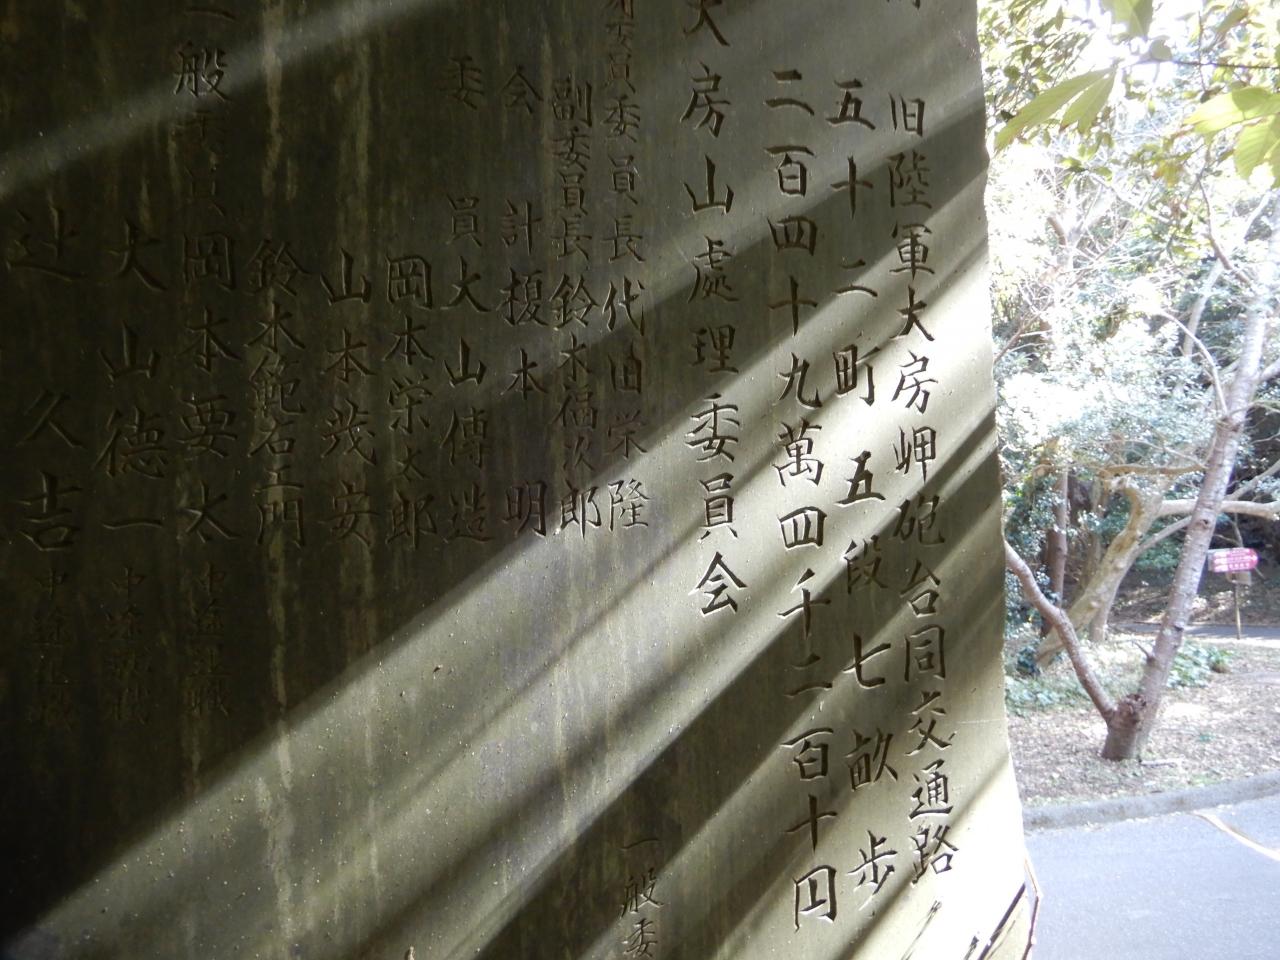 旧陸軍大房岬砲台同交通路
五十二町五段七畝歩
二百四十九萬四千二百十円
大房山處理委員会
委員委員長代田栄隆
一般委
副委員長鈴木福次郎
会計榎本明
委員大山傳造
岡本栄太郎
山本茂安
鈴木範右エ門
一般委員岡本要太
大山徳一
辻久吉